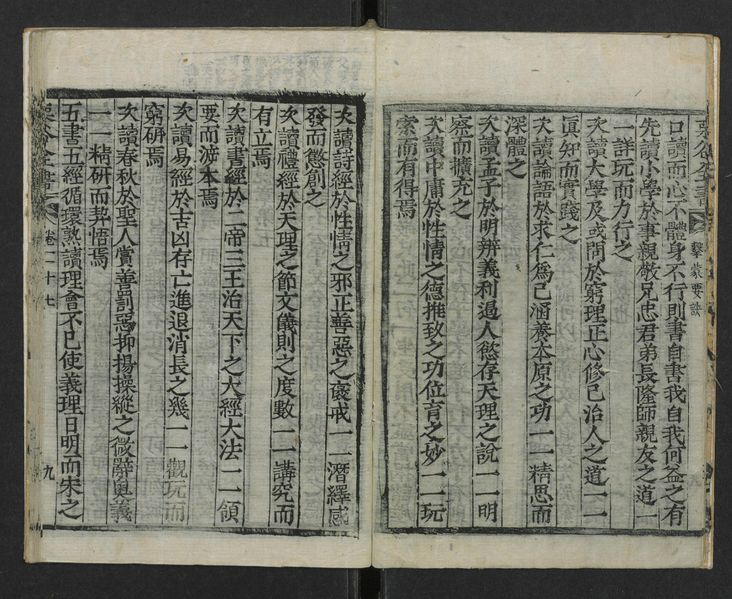 栗谷全書
擊蒙要訣
口讀而心不體身不行則書自書我自我何益之有
先讀小學於事親敬兄忠君弟長隆師親友之道一
一詳玩而力行之
次讀大學及或問於窮理正心修己治人之道一一
眞知而實踐之
次讀論語於求仁爲己涵養本原之功一一精思而
深體之
次讀孟子於明辨義利遏人慾存天理之說一一明
察而擴充之
次讀中庸於性情之德推致之功位育之妙一一玩
索而有得焉
次讀詩經於性情之邪正善惡之褒戒一一潛繹感
發而懲創之
次讀禮經於天理之節文儀則之度數一一講究而
有立焉
次讀書經於二帝三王治天下之大經大法一一領
要而遡本焉
次讀易經於吉凶存亡進退消長之幾一一觀玩而
窮硏焉
次讀春秋於聖人賞善罰惡抑揚操縱之微辭奧義
一一精硏而契悟焉
五書五經循環熟讀理會不已使義理日明而宋之
栗谷全書
卷二十七
九